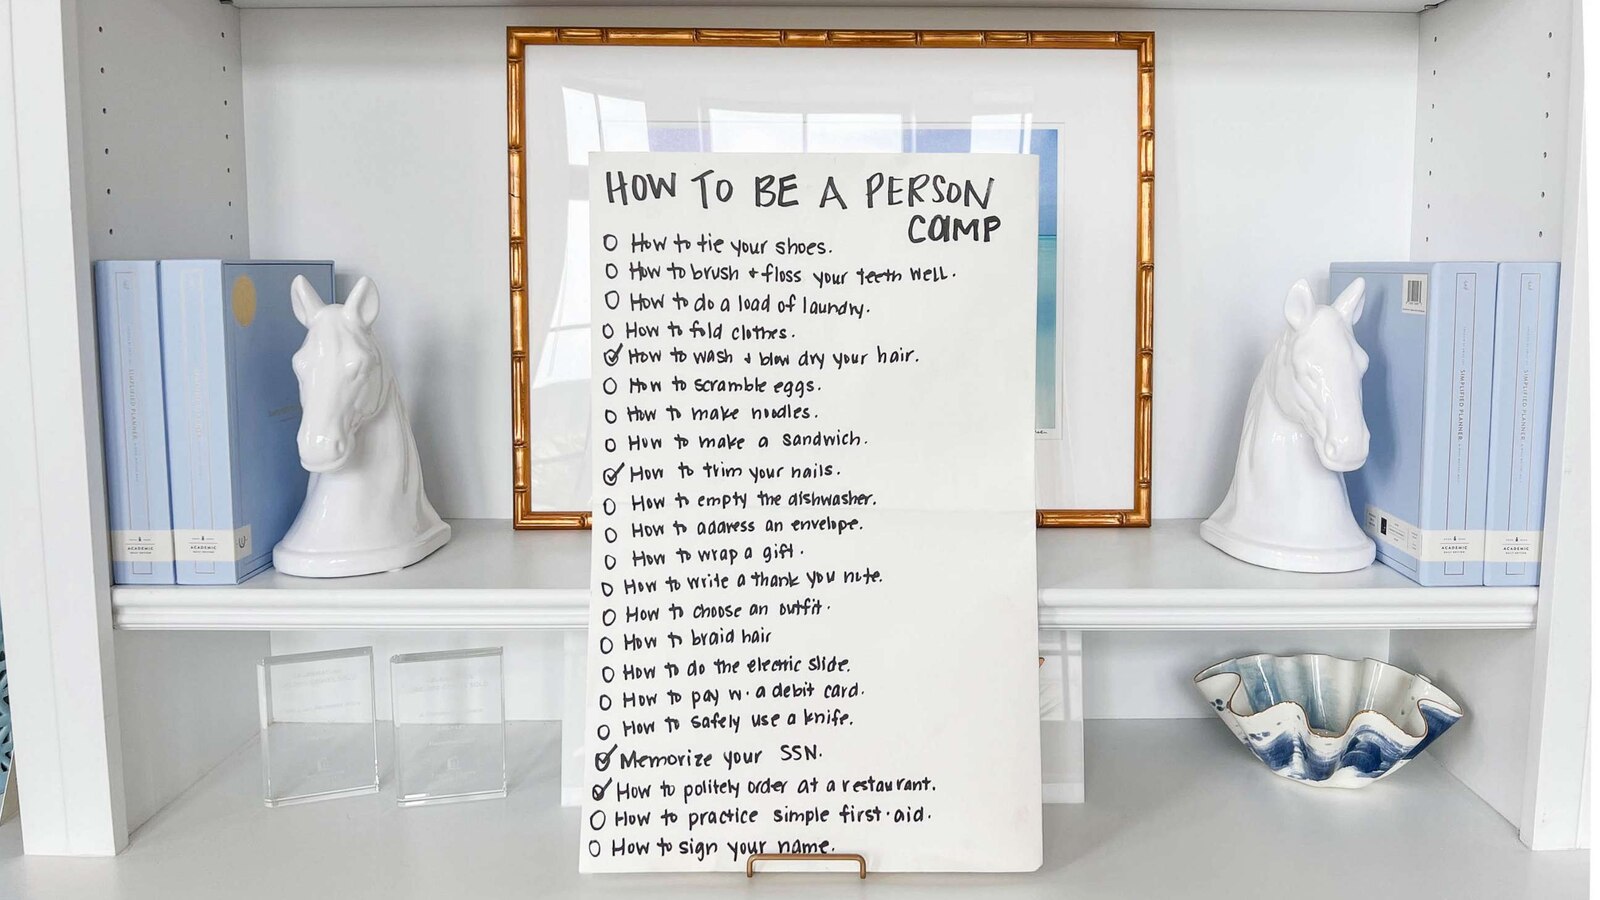 HOW TO BE A PERSON
CAMP
How to tie your shoes.
How to brush + floss your teeth well.
How to do a load of laundry.
How to fold clothes.
How to wash + blow dry your hair.
How to scramble eggs.
How to make noodles.
How to make a sandwich.
How to trim your nails.
How to empty the dishwasher.
How to address an envelope.
How to wrap a gift.
How to write a thank you note.
How to choose an outfit.
How to braid hair
How to do the electric slide.
How to pay w. a debit card.
How to safely use a knife.
Memorize your SSN.
How to politely order at a restaurant.
How to practice simple first-aid.
How to sign your name.
SIMPLIFIED PLANNER
ACADEMIC
SIMPLIFIED PLANNER
ACADEMIC
SIMPLIFIED PLANNER
ACADEMIC
SIMPLIFIED PLANNER
ACADEMIC